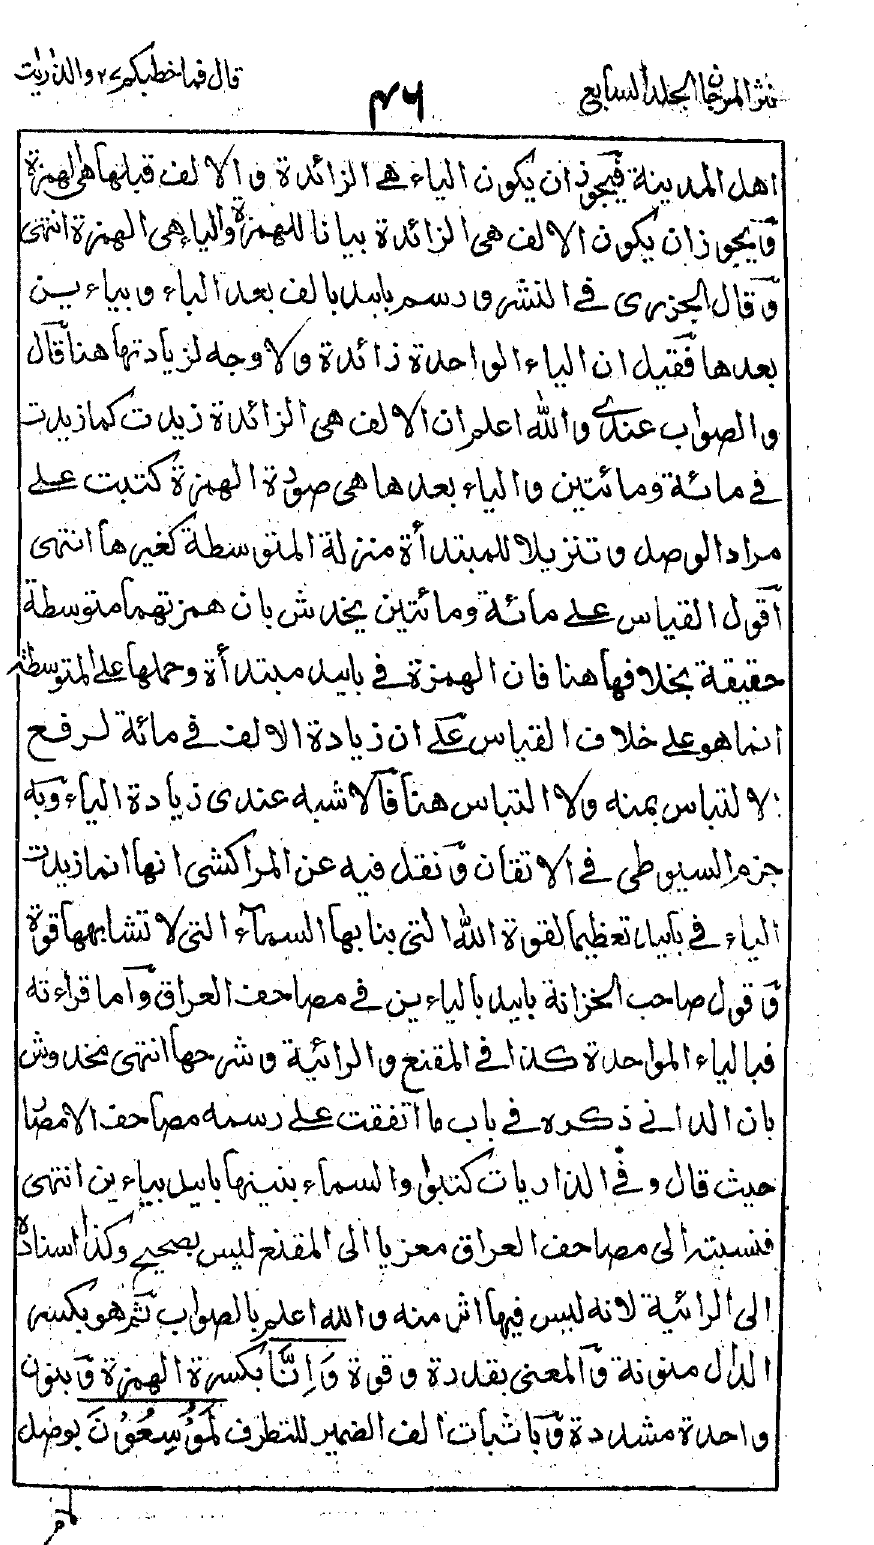 نثر المرجان الجلد السابع
٤٦
قال فما خطبكم ٢٧ والذاريات
اهل المدينة فيجوز ان يكون الياء هى الزائدة و الالف قبلها هى الهمزة
ويجوز ان يكون الالف هى الزائدة بيانا للهمزة والياء هى الهمزة انتهى
وقال الجزرى فى النشر و رسم باييد بالف بعد الباء و بياء ين
بعدها فقيل ان الياء الواحدة زائدة ولا وجه لزيادتها هنا قال
والصواب عندى والله اعلم ان الالف هى الزائدة زيدت كما زيدت
فى مائة ومائتين والياء بعدها هى صورة الهمزة كتبت على
مراد الوصل وتنزيلا للمبتدأة منزلة المتوسطة كغيرها انتهى
اقول القياس على مائة ومائتين يخدش بان همزتهما متوسطة
حقيقة بخلافها هنا فان الهمزة فى باييد مبتدأة وحملها على المتوسطة
انما هو على خلاف القياس على ان زيادة الالف فى مائة لرفع
الالتباس بمنه ولا التباس هنا فالاشبه عندى زيادة الياء وبه
جزم السيوطى فى الاتقان ونقل فيه عن المراكشى انها انما زيدت
الياء فى باييد تعظيما لقوة الله التى بنا بها السماء التى لا تشابهها قوة
وقول صاحب الخزانة باييد بالياءين فى مصاحف العراق واما قراءته
فبالياء الواحدة كذا فى المقنع والرائية وشرحها انتهى مخدوش
بان الدانى ذكره فى باب ما اتفقت على رسمه مصاحف الامصار
حيث قال و فى الذاريات كتبوا والسماء بنينها باييد بياء ين انتهى
فنسبته الى مصاحف العراق معزيا الى المقنع ليس بصحيح وكذا اسناده
الى الرائية لانه ليس فيها اثر منه والله اعلم بالصواب ثم هو بكسر
الدال منونة والمعنى بقدرة وقوة وَاِنَّا بكسرة الهمزة وبنون
واحدة مشددة وباثبات الف الضمير للتطرف لَمُوْسِعُوْنَ بوصل